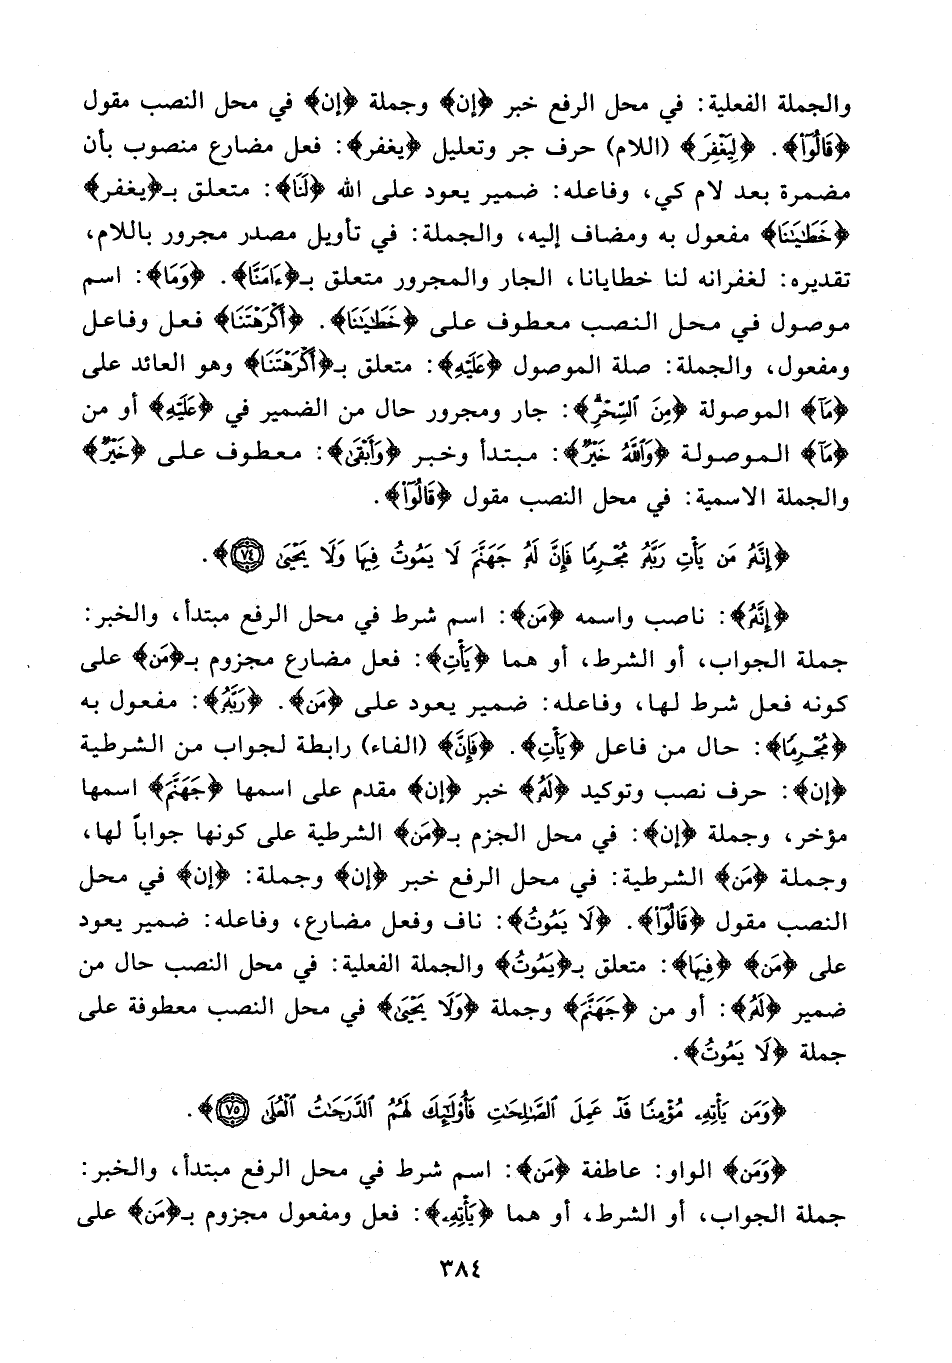 والجملة الفعلية: في محل الرفع خبر ﴿إن﴾ وجملة ﴿إن﴾ في محل النصب مقول
﴿قَالُوٓا۟﴾. ﴿لِيَغْفِرَ﴾ (اللام) حرف جر وتعليل ﴿يغفر﴾: فعل مضارع منصوب بأن
مضمرة بعد لام كي، وفاعله: ضمير يعود على الله ﴿لَنَا﴾: متعلق بـ﴿يغفر﴾
﴿خَطَٰيَٰنَا﴾ مفعول به ومضاف إليه، والجملة: في تأويل مصدر مجرور باللام،
تقديره: لغفرانه لنا خطايانا، الجار والمجرور متعلق بـ﴿ءَامَنَّا﴾. ﴿وَمَا﴾: اسم
موصول في محل النصب معطوف على ﴿خَطَٰيَٰنَا﴾. ﴿أَكْرَهْتَنَا﴾ فعل وفاعل
ومفعول، والجملة: صلة الموصول ﴿عَلَيْهِ﴾: متعلق بـ﴿أَكْرَهْتَنَا﴾ وهو العائد على
﴿مَآ﴾ الموصولة ﴿مِنَ ٱلسِّحْرِ ۗ﴾: جار ومجرور حال من الضمير في ﴿عَلَيْهِ﴾ أو من
﴿مَآ﴾ الموصولة ﴿وَٱللَّهُ خَيْرٌ﴾: مبتدأ وخبر ﴿وَأَبْقَىٰ﴾: معطوف على ﴿خَيْرٌ﴾
والجملة الاسمية: في محل النصب مقول ﴿قَالُوٓا۟﴾.
﴿إِنَّهُۥ مَن يَأْتِ رَبَّهُۥ مُجْرِمًا فَإِنَّ لَهُۥ جَهَنَّمَ لَا يَمُوتُ فِيهَا وَلَا يَحْيَىٰ ٧٤﴾.
﴿إِنَّهُۥ﴾: ناصب واسمه ﴿مَن﴾: اسم شرط في محل الرفع مبتدأ، والخبر:
جملة الجواب، أو الشرط، أو هما ﴿يَأْتِ﴾: فعل مضارع مجزوم بـ﴿مَن﴾ على
كونه فعل شرط لها، وفاعله: ضمير يعود على ﴿مَن﴾. ﴿رَبَّهُۥ﴾: مفعول به
﴿مُجْرِمًا﴾: حال من فاعل ﴿يَأْتِ﴾. ﴿فَإِنَّ﴾ (الفاء) رابطة لجواب من الشرطية
﴿إن﴾: حرف نصب وتوكيد ﴿لَهُۥ﴾ خبر ﴿إن﴾ مقدم على اسمها ﴿جَهَنَّمَ﴾ اسمها
مؤخر، وجملة ﴿إن﴾: في محل الجزم بـ﴿مَن﴾ الشرطية على كونها جواباً لها،
وجملة ﴿مَن﴾ الشرطية: في محل الرفع خبر ﴿إن﴾ وجملة: ﴿إن﴾ في محل
النصب مقول ﴿قَالُوٓا۟﴾. ﴿لَا يَمُوتُ﴾: ناف وفعل مضارع، وفاعله: ضمير يعود
على ﴿مَن﴾ ﴿فِيهَا﴾: متعلق بـ﴿يَمُوتُ﴾ والجملة الفعلية: في محل النصب حال من
ضمير ﴿لَهُۥ﴾: أو من ﴿جَهَنَّمَ﴾ وجملة ﴿وَلَا يَحْيَىٰ﴾ في محل النصب معطوفة على
جملة ﴿لَا يَمُوتُ﴾.
﴿وَمَن يَأْتِهِۦ مُؤْمِنًا قَدْ عَمِلَ ٱلصَّٰلِحَٰتِ فَأُو۟لَٰٓئِكَ لَهُمُ ٱلدَّرَجَٰتُ ٱلْعُلَىٰ ٧٥﴾.
﴿وَمَن﴾ الواو: عاطفة ﴿مَن﴾: اسم شرط في محل الرفع مبتدأ، والخبر:
جملة الجواب، أو الشرط، أو هما ﴿يَأْتِهِۦ﴾: فعل ومفعول مجزوم بـ﴿مَن﴾ على
٣٨٤